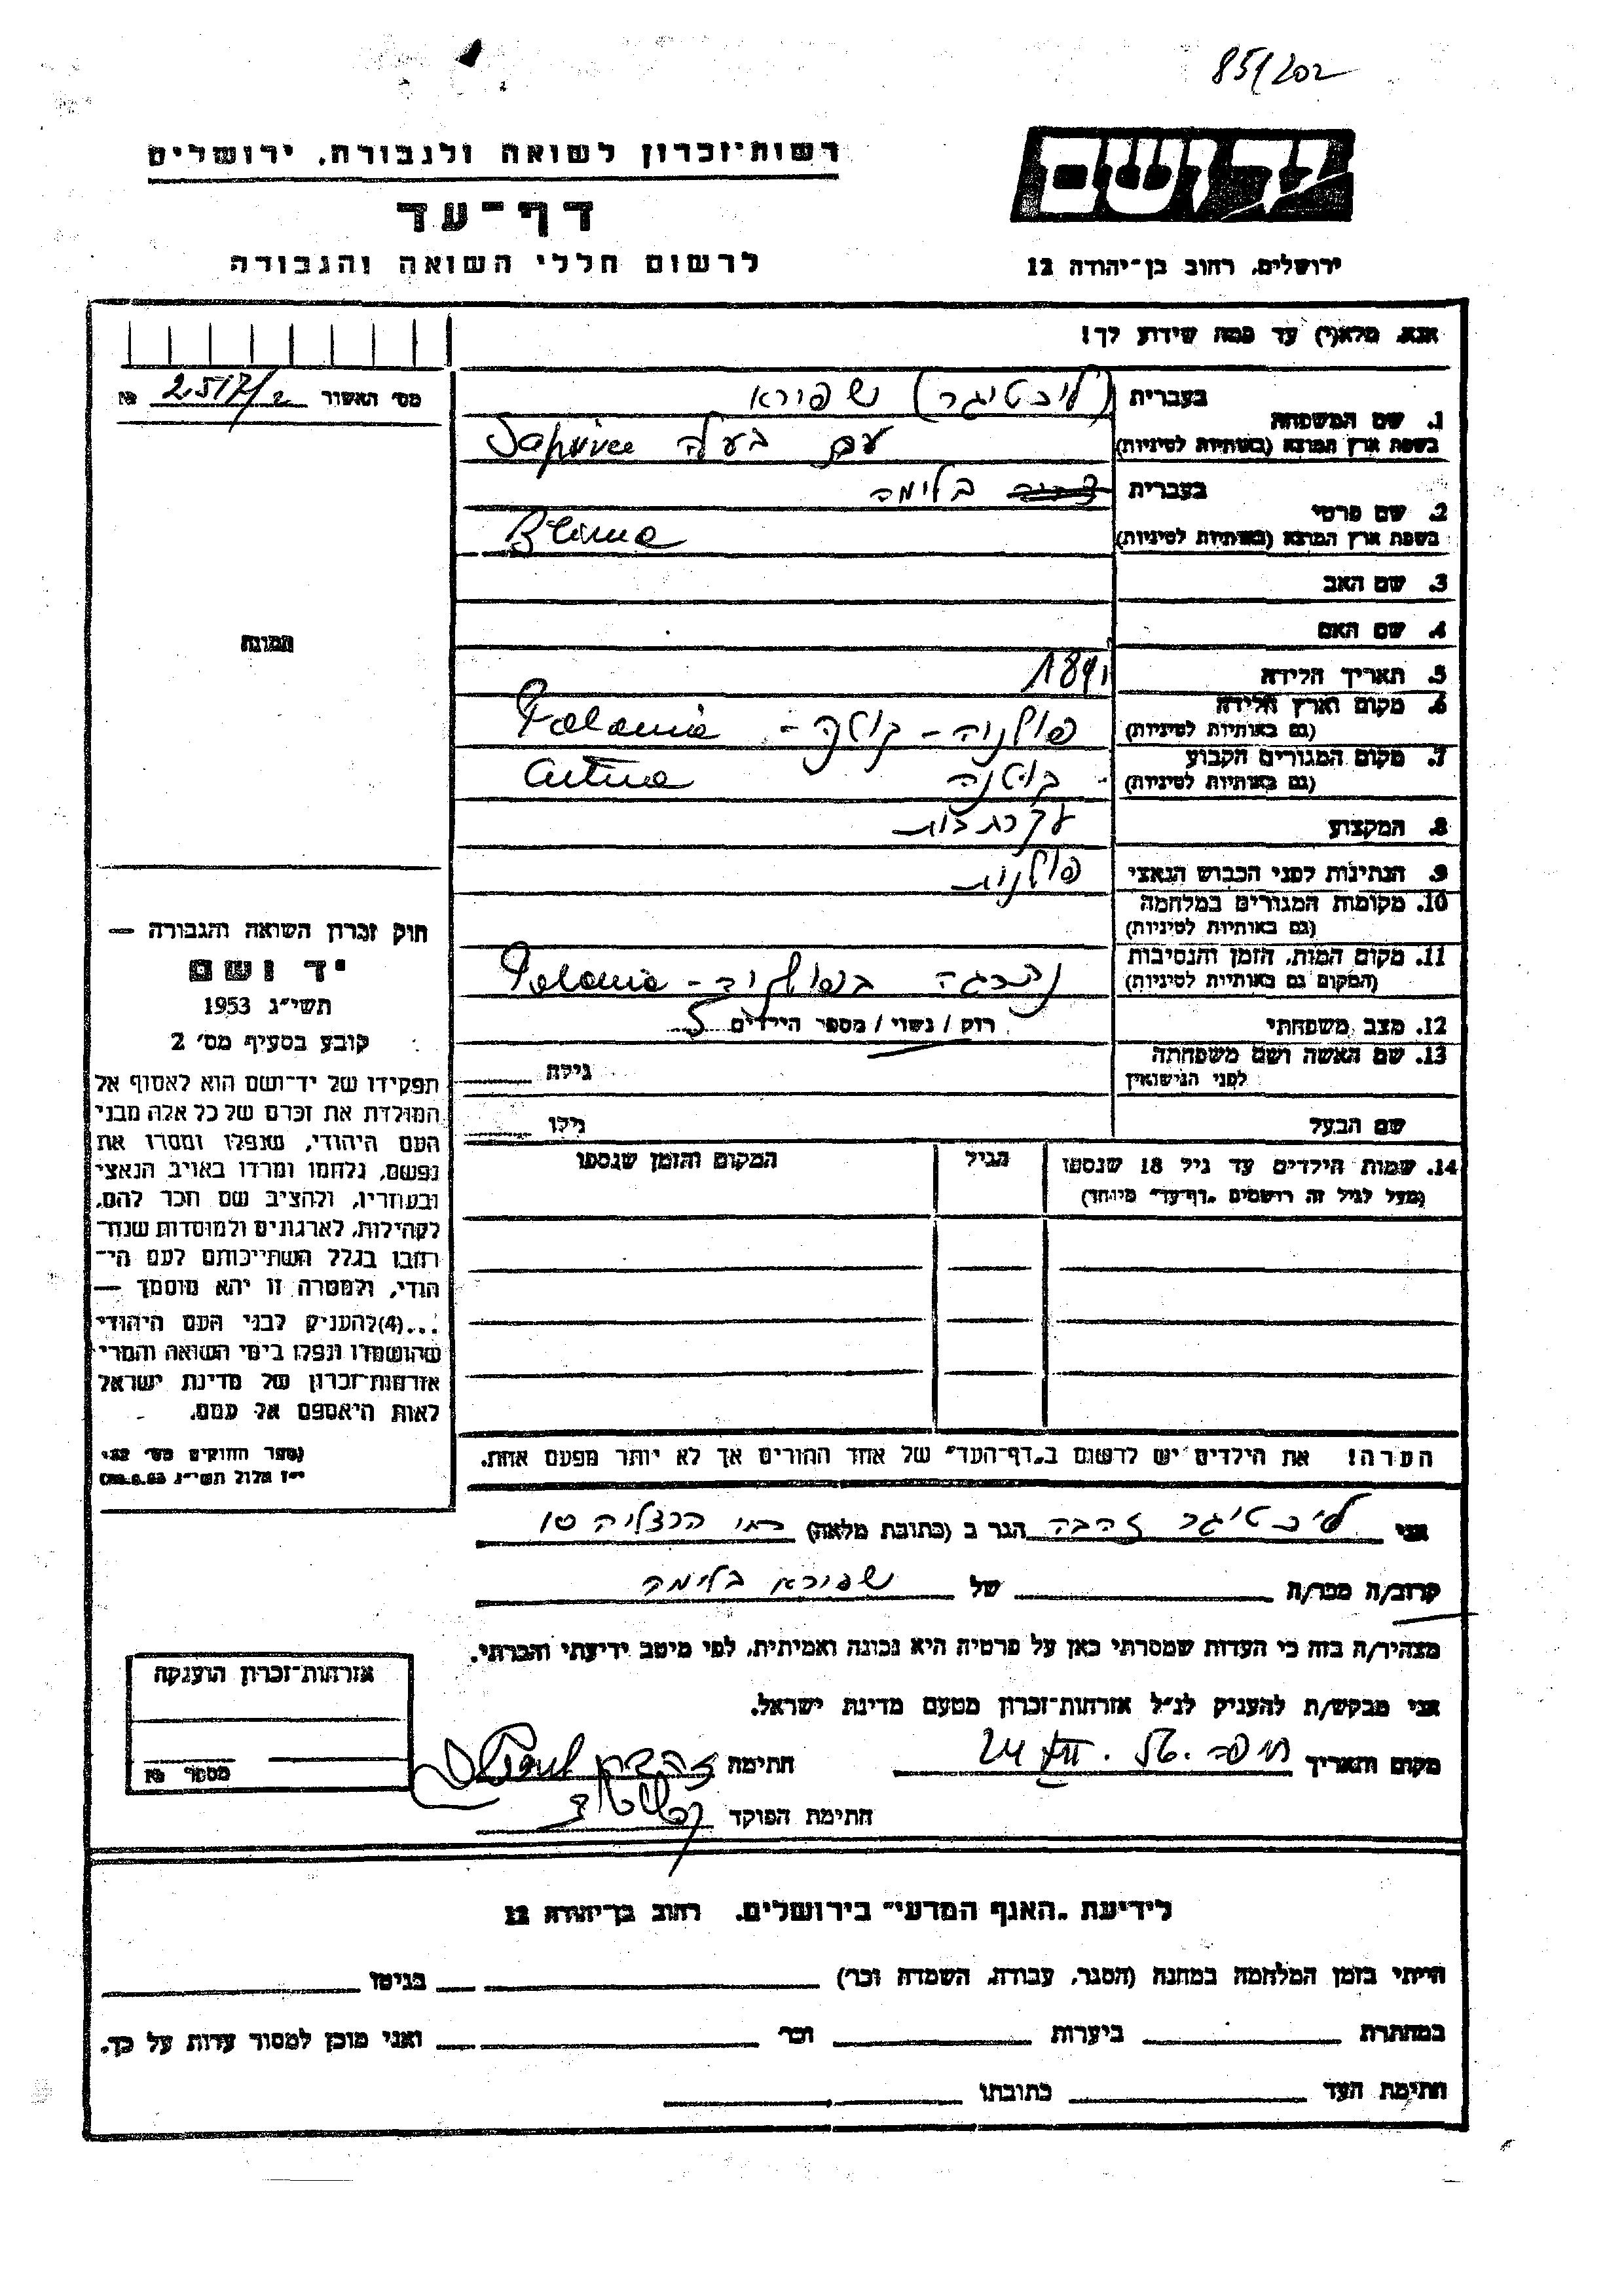 85/202
רשות־זכרון לשואה ולגבורה, ירושלים
דף־עד
לרשום חללי השואה והגבורה
יד ושם
ירושלים, רחוב בן־יהודה 12
אנא, מלא(י) עד כמה שידוע לך!
מס' האשור 2517/2 №
1. שם המשפחה
בעברית (ליכטיגר) שפירא
בשפת ארץ המוצא (באותיות לטיניות) עם בעלה
2. שם פרטי
בעברית בלימה
בשפת ארץ המוצא (באותיות לטיניות) Blima
3. שם האב
4. שם האם
5. תאריך הלידה 1891
6. מקום וארץ הלידה
(גם באותיות לטיניות) פולניה - Polania
7. מקום המגורים הקבוע
(גם באותיות לטיניות) קוטנה
8. המקצוע עקרת בית
9. הנתינות לפני הכבוש הנאצי פולנית
10. מקומות המגורים במלחמה
(גם באותיות לטיניות)
11. מקום המות, הזמן והנסיבות
(המקום גם באותיות לטיניות) נהרגה בפולניה - Polania
12. מצב משפחתי רוק / נשוי / מספר הילדים 5
13. שם האשה ושם משפחתה
לפני הנישואין
גילה
שם הבעל גילו
14. שמות הילדים עד גיל 18 שנספו
(מעל לגיל זה רושמים „דף־עד” מיוחד)
הגיל
המקום והזמן שנספו
הערה! את הילדים יש לרשום ב„דף־העד” של אחד ההורים אך לא יותר מפעם אחת.
תמונה
חוק זכרון השואה והגבורה —
יד ושם
תשי״ג 1953
קובע בסעיף מס' 2
תפקידו של יד־ושם הוא לאסוף אל
המולדת את זכרם של כל אלה מבני
העם היהודי, שנפלו ומסרו את
נפשם, נלחמו ומרדו באויב הנאצי
ובעוזריו, ולהציב שם וזכר להם,
לקהילות, לארגונים ולמוסדות שנח־
רבו בגלל השתייכותם לעם הי־
הודי, ולמטרה זו יהא מוסמך —
...(4)להעניק לבני העם היהודי
שהושמדו ונפלו בימי השואה והמרי
אזרחות־זכרון של מדינת ישראל
לאות היאספם אל עמם.
(ספר החוקים מס' 132,
י״ז אלול תשי״ג 28.8.53)
אני ליכטיגר זהבה הגר ב (כתובת מלאה) רח' הרצליה 10
קרוב/ה מכר/ה של שפירא בלימה
מצהיר/ה בזה כי העדות שמסרתי כאן על פרטיה היא נכונה ואמיתית, לפי מיטב ידיעתי והכרתי.
אני מבקש/ת להעניק לנ״ל אזרחות־זכרון מטעם מדינת ישראל.
מקום ותאריך חיפה 24 XII 56. חתימה זהבה
חתימת הפוקד
אזרחות־זכרון הוענקה
מספר №
לידיעת „האגף המדעי” בירושלים, רחוב בן־יהודה 12
הייתי בזמן המלחמה במחנה (הסגר, עבודה, השמדה וכו') בגיטו
במחתרת ביערות וכו' ואני מוכן למסור עדות על כך.
חתימת העד כתובתו